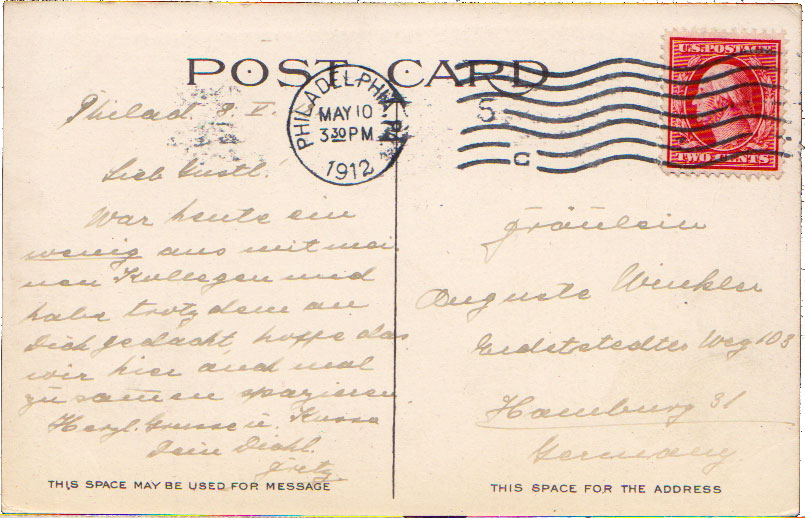 POST CARD
PHILADELPHIA, PA.
MAY 10
3 30 PM
1912
5
C
U.S. POSTAGE
TWO CENTS
Philad 8 V.
Lieb Gustl!
War heute ein
wenig aus mit mei
nen Kollegen und
habe trotzdem an
Dich gedacht, hoffe das
wir hier auch mal
zu samen spazieren.
Herzl. Grusse u. Kusse
Dein Dichl.
Fritz
THIS SPACE MAY BE USED FOR MESSAGE
Fräulein
Auguste Winkler
Weg 103
Hamburg 31
Germany
THIS SPACE FOR THE ADDRESS